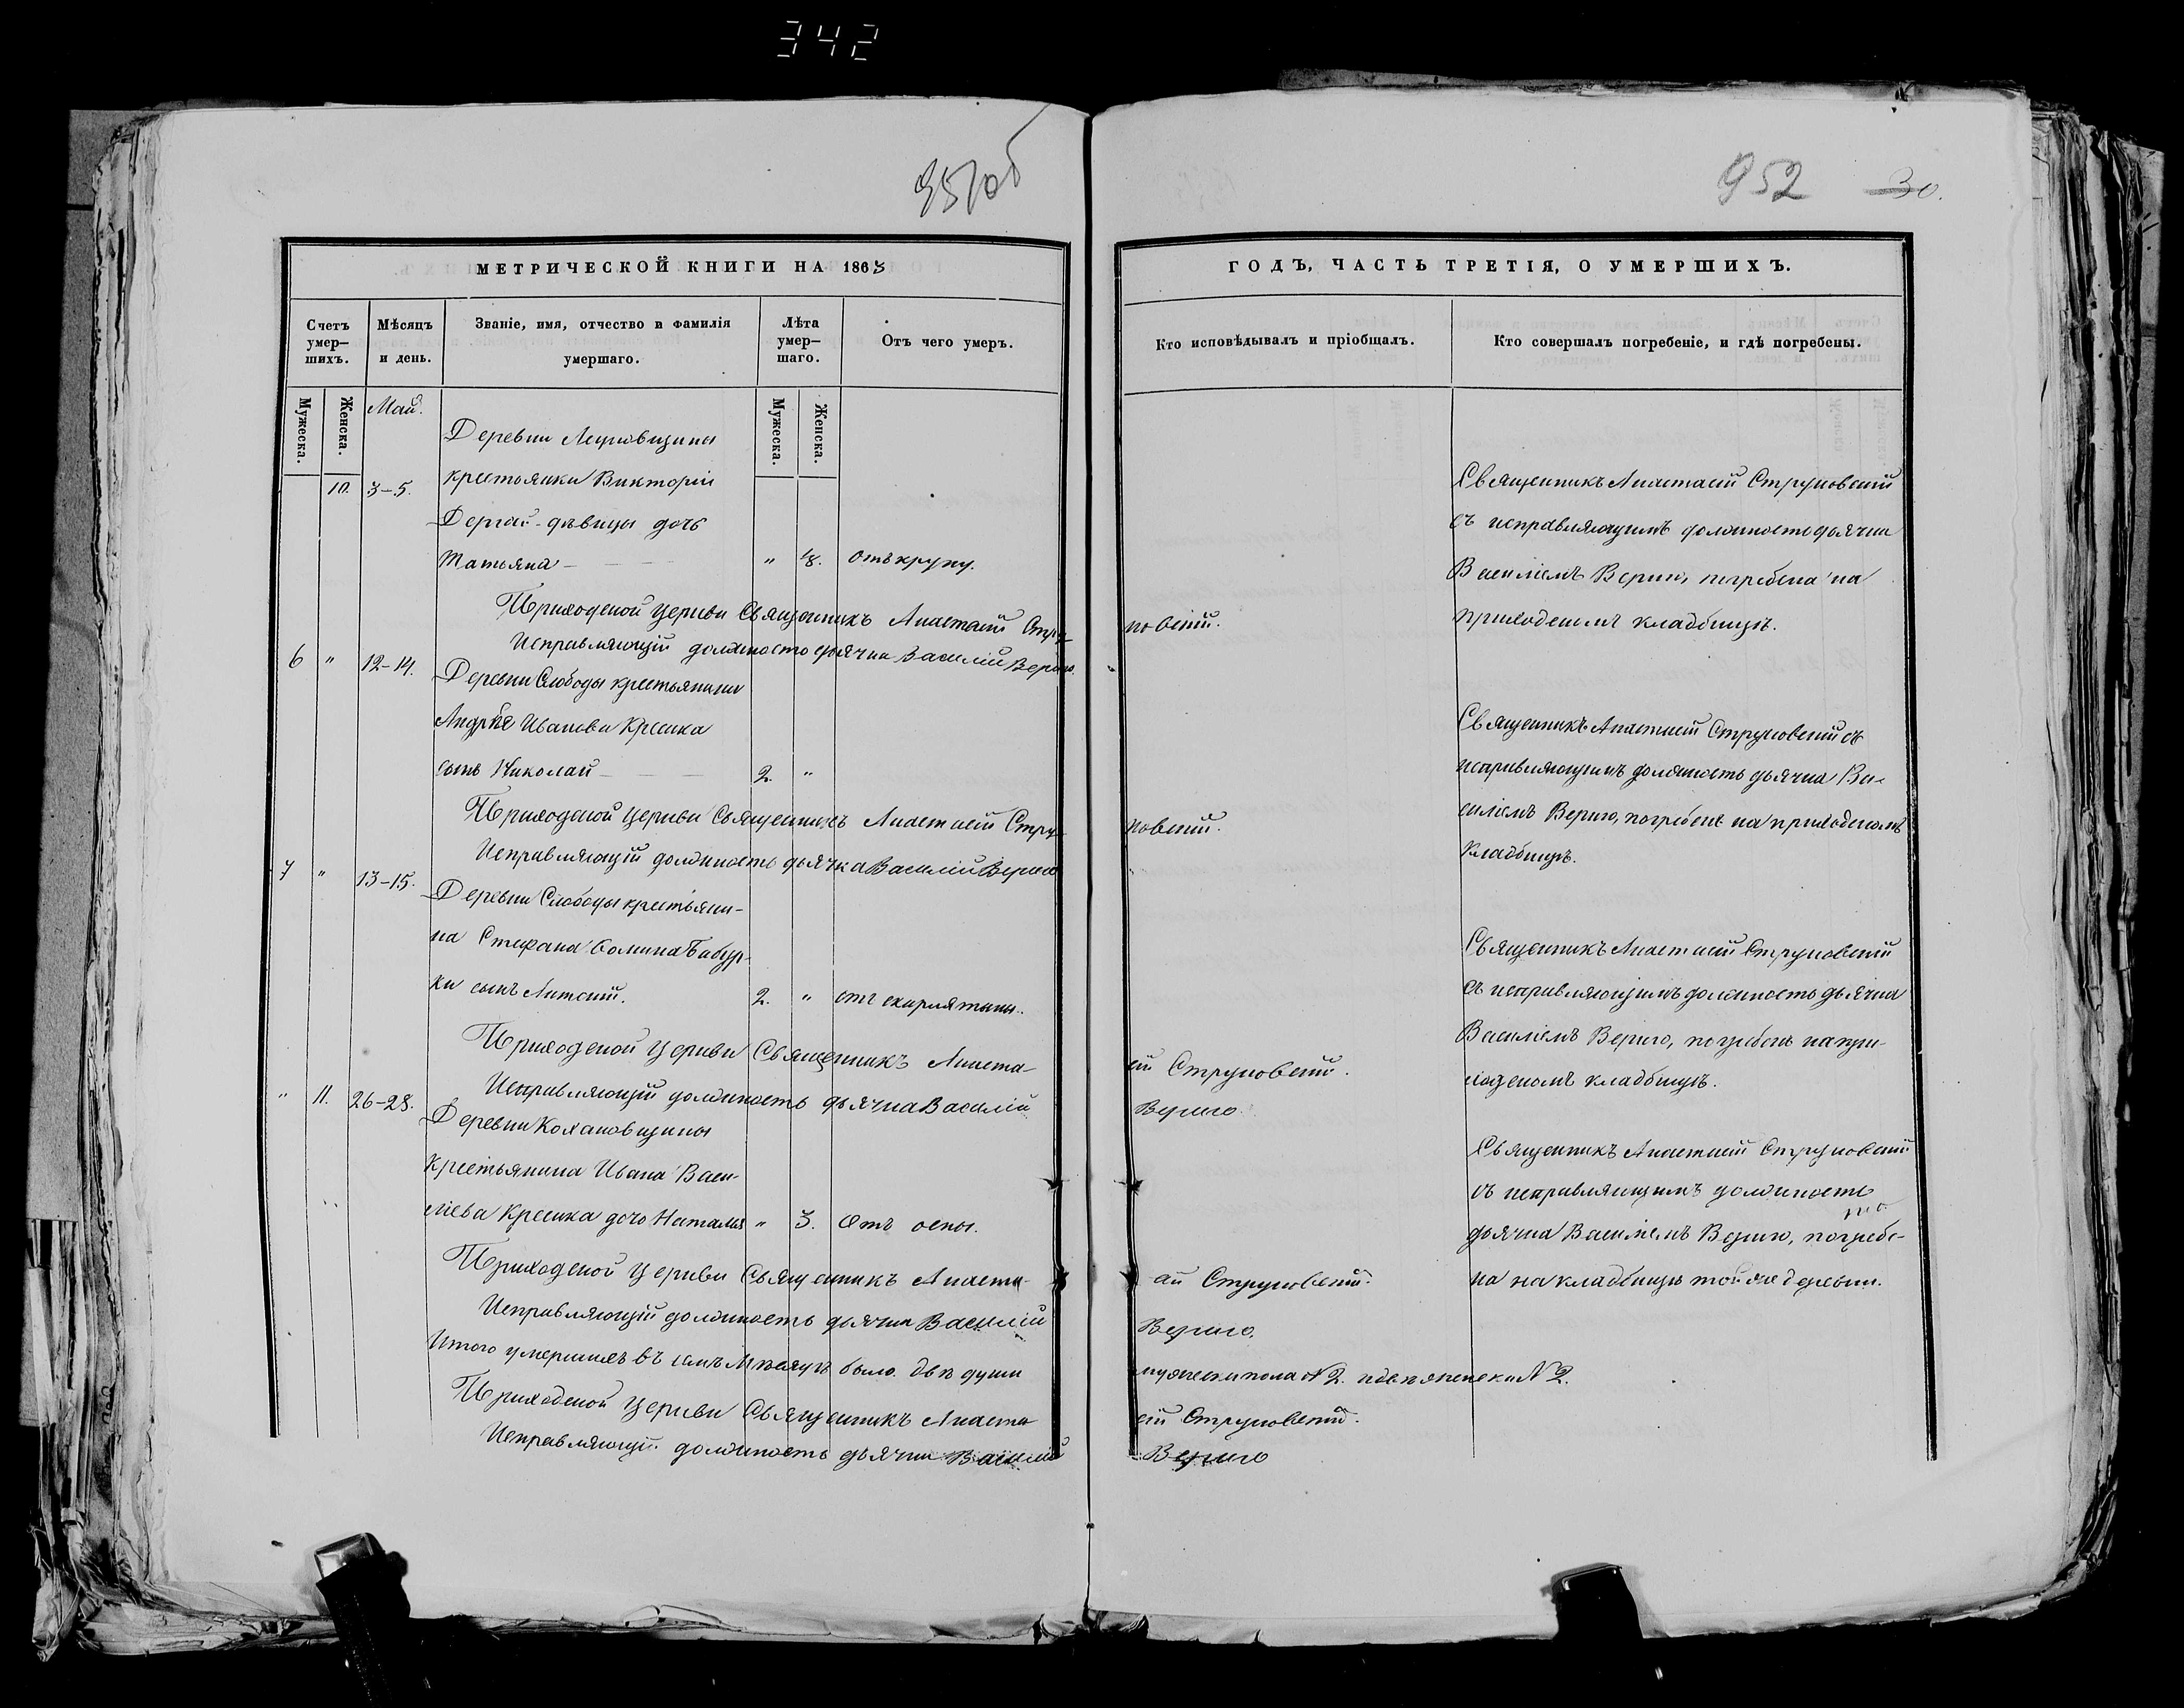 342
951об
952 30.
МЕТРИЧЕСКОЙ КНИГИ НА 1863
ГОДЪ, ЧАСТЬ ТРЕТІЯ, О УМЕРШИХЪ.
Счетъ умер-шихъ.
Мѣсяцъ и день.
Званіе, имя, отчество и фамилія умершаго.
Лѣта умер-шаго.
Отъ чего умеръ.
Кто исповѣдывалъ и пріобщалъ.
Кто совершалъ погребеніе, и гдѣ погребены.
Мужеска.
Женска.
Мужеска.
Женска.
Май.
Деревни
10. 3-5. крестьянки Викторіи
дѣвицы дочь
Татьяна - " отъ крупу.
Священникъ Анастасій Струковскій
съ исправляющимъ должность дьячка
Василіемъ Вериго, погребена на
приходскомъ кладбищѣ.
Приходской Церкви Священникъ Анастасій Струковскій.
Исправляющій должность дьячка Василій Вериго.
6 " 12-14. Деревни Слободы крестьянина
Андрѣя Иванова Кресика
сынъ Николай - 2. "
Священникъ Анастасій Струковскій съ
исправляющимъ должность дьячка Ва-
силіемъ Вериго, погребенъ на приходскомъ
кладбищѣ.
Приходской Церкви Священникъ Анастасій Струковскій.
Исправляющій должность дьячка Василій Вериго
7 " 13-15. Деревни Слободы крестьяни-
на Стефана Ѳомина Бабур-
ки сынъ Антоній. 2. " отъ скарлятины.
Священникъ Анастасій Струковскій
съ исправляющимъ должность дьячка
Василіемъ Вериго, погребенъ на при-
ходскомъ кладбищѣ.
Приходской Церкви Священникъ Анастасій Струковскій.
Исправляющій должность дьячка Василій Вериго
" 11. 26-28. Деревни Кохановщины
крестьянина Ивана Васи-
лієва Кресика дочь Наталья " 3. Отъ оспы.
Священникъ Анастасій Струковскій
съ исправляющимъ должность
дьячка Василіемъ Вериго, погребе-
на на кладбищѣ той же деревни.
Приходской Церкви Священникъ Анастасій Струковскій.
Исправляющій должность дьячка Василій Вериго.
Итого умершихъ въ семъ Мѣсяцѣ было двѣ души мужеска пола № 2. и двѣ женска № 2.
Приходской Церкви Священникъ Анастасій Струковскій.
Исправляющій должность дьячка Василій Вериго